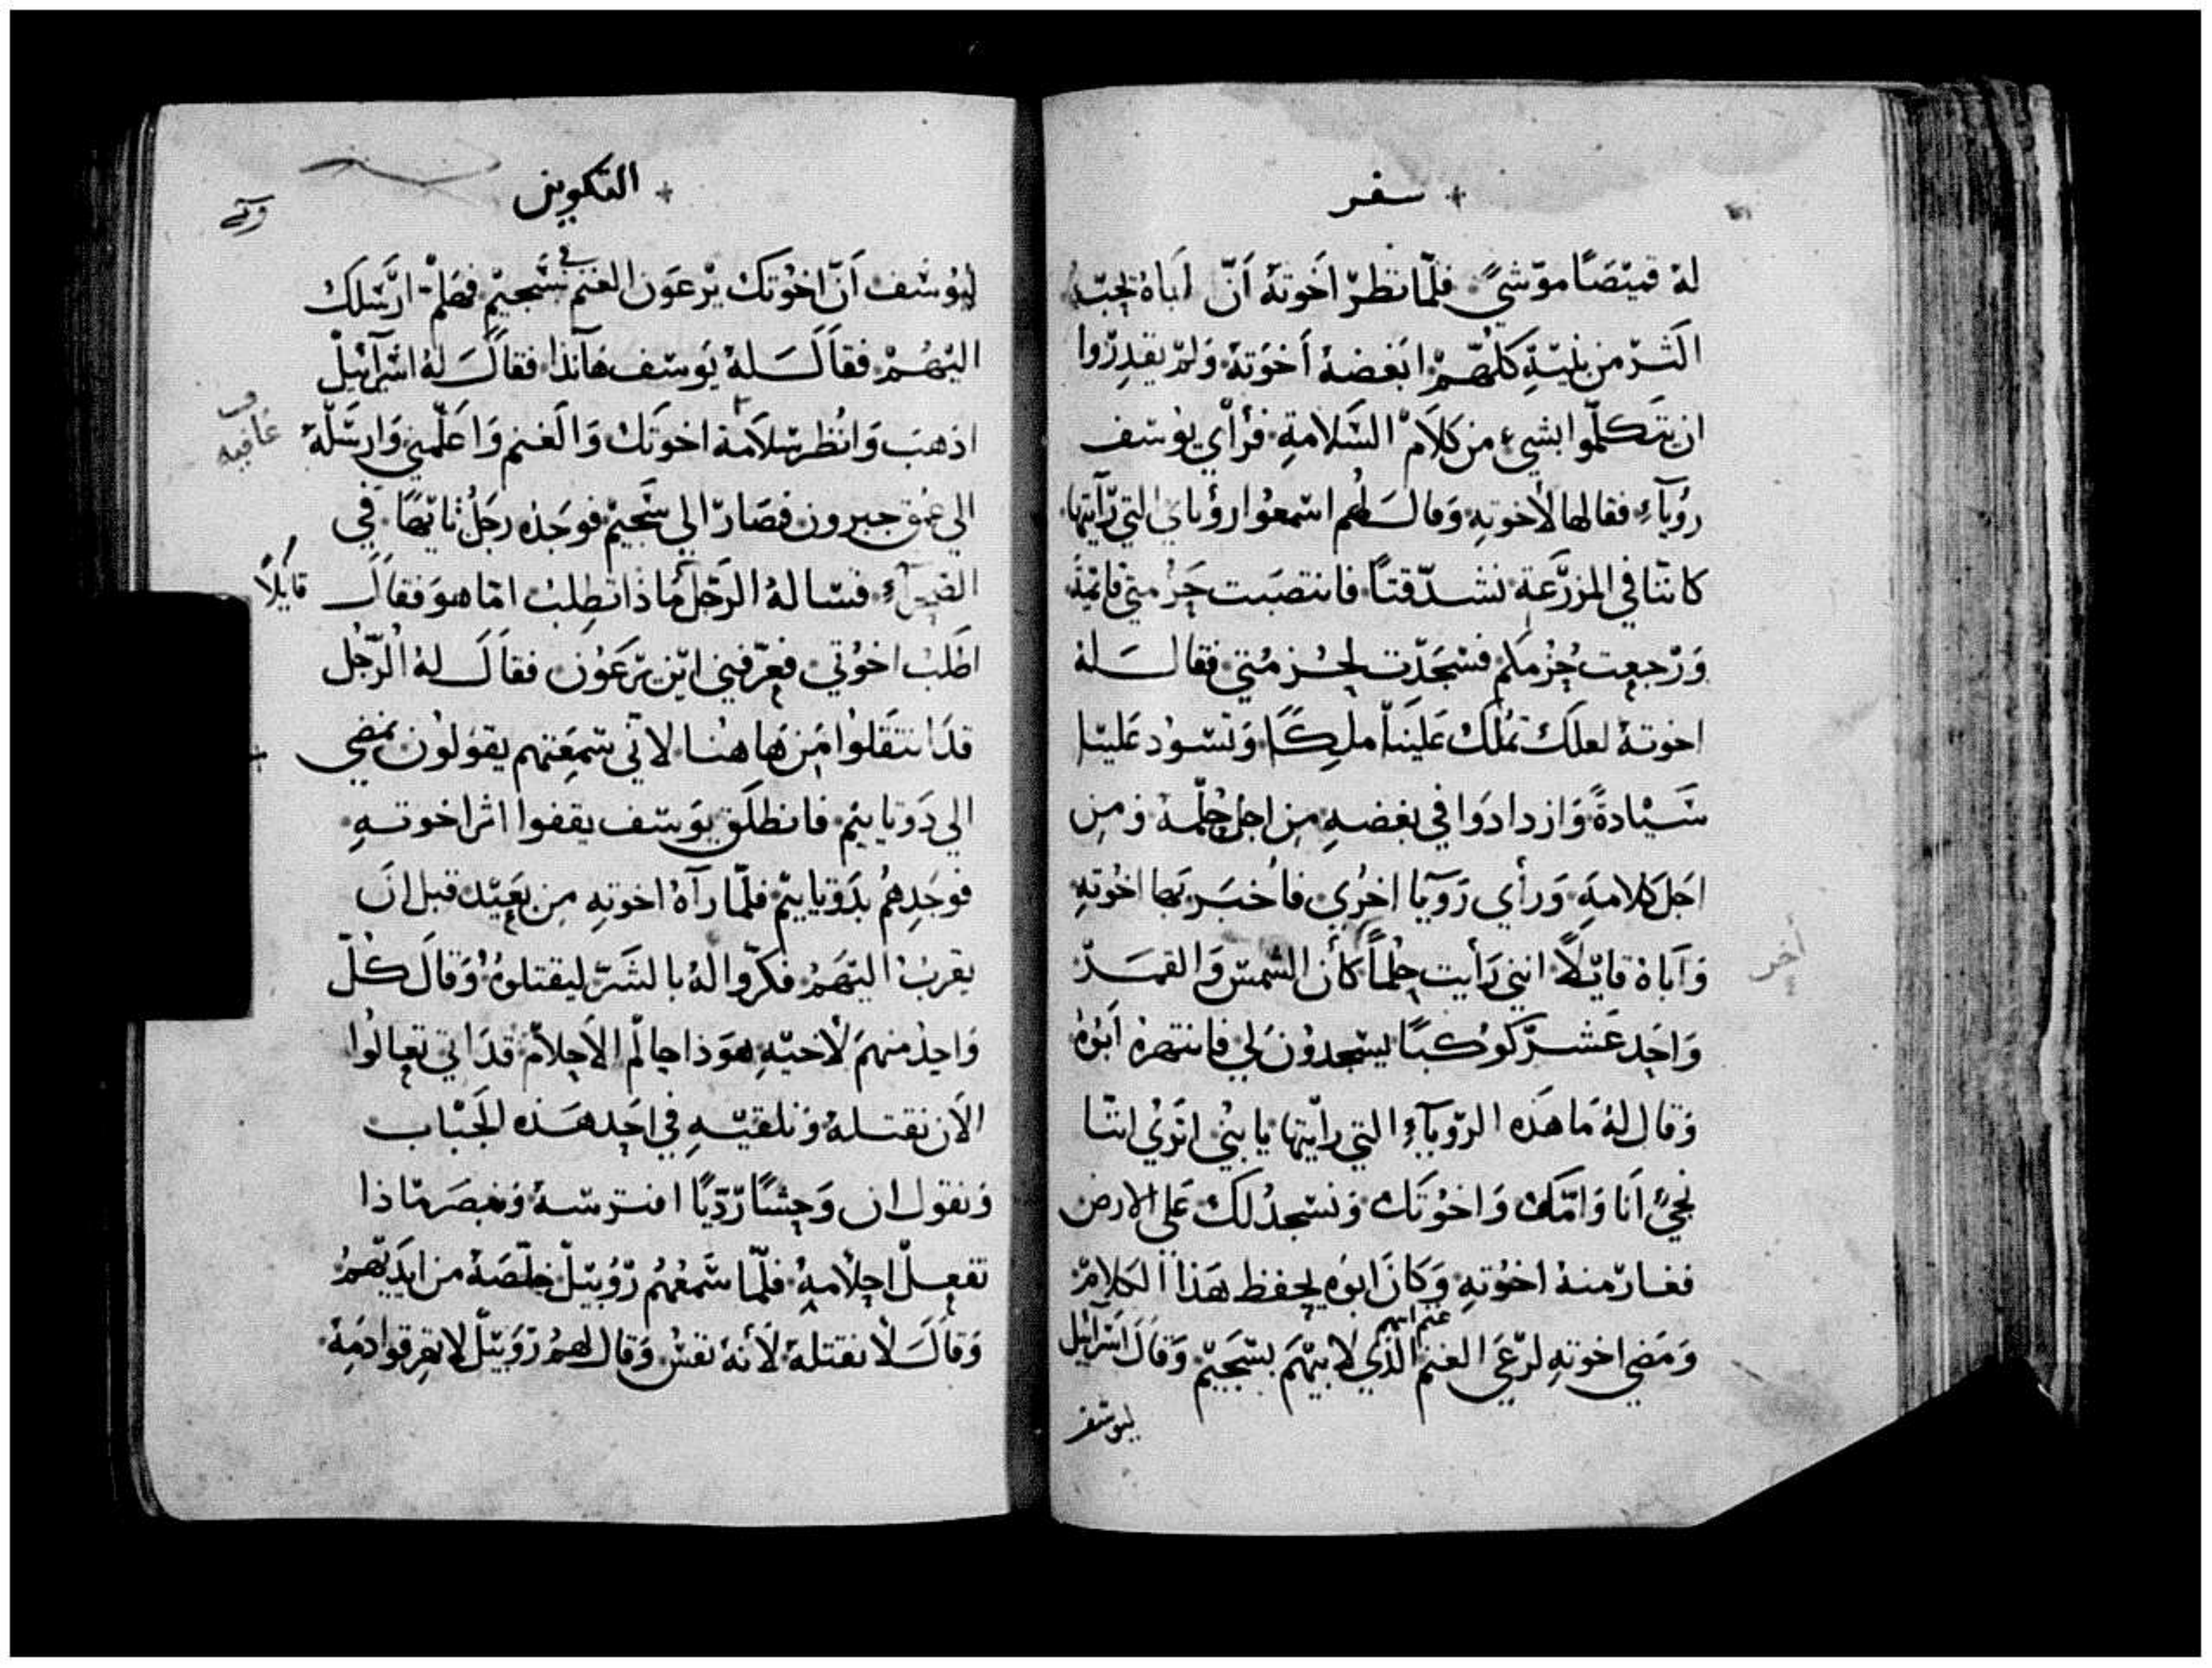 + سفر
له قميصًا موّشيً فلمّا نظر اخوته أنّ اباهُ يحبّه
اكثر من بنيه كلّهم ابغضه أخوته ولم يقدروا
ان يتكلّموا بشيء من كلام السّلامةِ فرأي يوسف
رؤيآء فقالها لأخوتهِ وقال لهم اسمعوا رؤياي التي رأيتها
كاننّا في المزرعة نشدّ قتًا فانتصبت حزمتي قائمة
ورجعت حزمكم فسجدت لحزمتي فقال له
اخوته لعلك تملك علينا ملكًا وتسود علينا
سيادةً وازدادوا في بغضهِ من اجل حلمه ومن
اجل كلامهِ ورأي رويا اخري فأخبر بها اخوتهِ
وأباهُ قايلاً انني رأيت حلمًا كأن الشمس والقمر
أخر
واحد عشر كوكبًا يسجدون لي فانتهره ابوهُ
وقال لهُ ما هذه الروياءِ التي رايتها يا بني اتري اننا
نجيُ أنا وامّك واخوتك ونسجد لك علي الارض
فغار منهُ اخوتهِ وكان ابوه يحفظ هذا الكلام
ومضي اخوتهِ لرعي الغنم الذي لابيهم بشجيم وقال اسرآئيل
غنم ابيهم
ليوسف
+ التكوين
ليوسف أنّ اخوتك يرعون الغنم في شجيم فهلم ارسلك
اليهم فقال له يوسف هآنذا فقال له اسرآئيل
اذهب وانظر سلامة اخوتك والغنم واعلمني وارسله
عافيه
الي عمق حبرون فصار الي شجيم فوجده رجل تايهًا في
الصحرآء فسالهُ الرجل ماذا تطلب امّا هو فقال
قايلاً
اطلب اخوتي فعرّفني اين يرعون فقال لهُ الرّجل
قد انتقلوا من هاهنا لاني سمعتهم يقولون نمضي
الي دوتاييم فانطلق يوسف يقفوا اثر اخوتهِ
فوجدهم بدوتاييم فلمّا رآهُ اخوتهِ من بعيد قبل ان
يقرب اليهم فكّروا لهُ بالشّر ليقتلوهُ وقال كلّ
واحد منهم لاخيهِ هوذا حالم الاحلام قد اتي تعالوا
الآن نقتله ونلقيهِ في احد هذه الجباب
ونقول ان وحشًا رديًا افترسهُ ونبصر ماذا
تفعل احلامهِ فلمّا سمعهم روبيل خلّصهُ من ايديهم
وقال لا نقتله لأنهُ نفس وقال لهم روبيل لا تهرقوا دمهِ